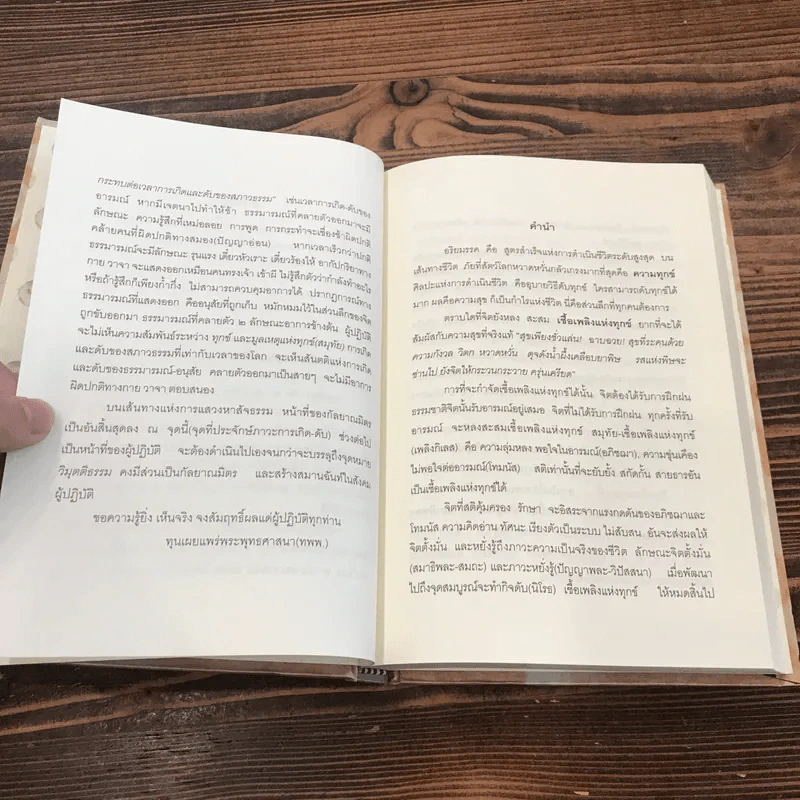 กระทบต่อเวลาการเกิดและดับของสภาวธรรม" เช่นเวลาการเกิด-ดับของ
อารมณ์ หากมีเจตนาไปทำให้ช้า ธรรมารมณ์ที่คลายตัวออกมาจะมี
ลักษณะ ความรู้สึกที่เหม่อลอย การพูด การกระทำจะเชื่องช้าผิดปกติ
คล้ายคนที่ผิดปกติทางสมอง(ปัญญาอ่อน) หากเวลาเร็วกว่าปกติ
ธรรมารมณ์จะมีลักษณะ รุนแรง เดี๋ยวหัวเราะ เดี๋ยวร้องไห้ อากัปกริยาทาง
กาย วาจา จะแสดงออกเหมือนคนทรงเจ้า เข้าผี ไม่รู้สึกตัวว่ากำลังทำอะไร
หรือถ้ารู้สึกก็เพียงก้ำกึ่ง ไม่สามารถควบคุมอาการได้ ปรากฏการณ์ทาง
ธรรมารมณ์ที่แสดงออก คืออนุสัยที่ถูกเก็บ หมักหมมไว้ในส่วนลึกของจิต
ถูกขับออกมา ธรรมารมณ์ที่คลายตัว ๒ ลักษณะอาการข้างต้น ผู้ปฏิบัติ
จะไม่เห็นความสัมพันธ์ระหว่าง ทุกข์ และมูลเหตุแห่งทุกข์(สมุทัย) การเกิด
และดับของสภาวธรรมที่เท่ากับเวลาของโลก จะเห็นสันตติแห่งการเกิด
และดับของธรรมารมณ์-อนุสัย คลายตัวออกมาเป็นสายๆ จะไม่มีอาการ
ผิดปกติทางกาย วาจา ตอบสนอง
บนเส้นทางแห่งการแสวงหาสัจธรรม หน้าที่ของกัลยาณมิตร
เป็นอันสิ้นสุดลง ณ จุดนี้(จุดที่ประจักษ์ภาวะการเกิด-ดับ) ช่วงต่อไป
เป็นหน้าที่ของผู้ปฏิบัติ จะต้องดำเนินไปเองจนกว่าจะบรรลุถึงจุดหมาย
วิมุตติธรรม คงมีส่วนเป็นกัลยาณมิตร และสร้างสมานฉันท์ในสังคม
ผู้ปฏิบัติ
ขอความรู้ยิ่ง เห็นจริง จงสัมฤทธิ์ผลแด่ผู้ปฏิบัติทุกท่าน
ทุนเผยแพร่พระพุทธศาสนา(ทพพ.)
คำนำ
อริยมรรค คือ สูตรสำเร็จแห่งการดำเนินชีวิตระดับสูงสุด บน
เส้นทางชีวิต ภัยที่สัตว์โลกหวาดหวั่นกลัวเกรงมากที่สุดคือ ความทุกข์
ศิลปะแห่งการดำเนินชีวิต คืออุบายวิธีดับทุกข์ ใครสามารถดับทุกข์ได้
มาก ผลคือความสุข ก็เป็นกำไรแห่งชีวิต นี่คือส่วนลึกที่ทุกคนต้องการ
ตราบใดที่จิตยังหลง สะสม เชื้อเพลิงแห่งทุกข์ ยากที่จะได้
สัมผัสกับความสุขที่จริงแท้ "สุขเพียงชั่วแล่น! ฉาบฉวย! สุขที่ระคนด้วย
ความกังวล วิตก หวาดหวั่น ดุจดังน้ำผึ้งเคลือบยาพิษ รสแห่งพิษจะ
ซ่านไป ยังจิตให้กระวนกระวาย ครุ่นเครียด"
การที่จะกำจัดเชื้อเพลิงแห่งทุกข์ได้นั้น จิตต้องได้รับการฝึกฝน
ธรรมชาติจิตนั้นรับอารมณ์อยู่เสมอ จิตที่ไม่ได้รับการฝึกฝน ทุกครั้งที่รับ
อารมณ์ จะหลงสะสมเชื้อเพลิงแห่งทุกข์ สมุทัย-เชื้อเพลิงแห่งทุกข์
(เพลิงกิเลส) คือ ความลุ่มหลง พอใจในอารมณ์(อภิชฌา), ความขุ่นเคือง
ไม่พอใจต่ออารมณ์(โทมนัส) สติเท่านั้นที่จะยับยั้ง สกัดกั้น สายธารอัน
เป็นเชื้อเพลิงแห่งทุกข์ได้
จิตที่สติคุ้มครอง รักษา จะอิสระจากแรงกดดันของอภิชฌาและ
โทมนัส ความคิดอ่าน ทัศนะ เรียงตัวเป็นระบบ ไม่สับสน อันจะส่งผลให้
จิตตั้งมั่น และหยั่งรู้ถึงภาวะความเป็นจริงของชีวิต ลักษณะจิตตั้งมั่น
(สมาธิพละ-สมถะ) และภาวะหยั่งรู้(ปัญญาพละ-วิปัสสนา) เมื่อพัฒนา
ไปถึงจุดสมบูรณ์จะทำกิจดับ(นิโรธ) เชื้อเพลิงแห่งทุกข์ ให้หมดสิ้นไป